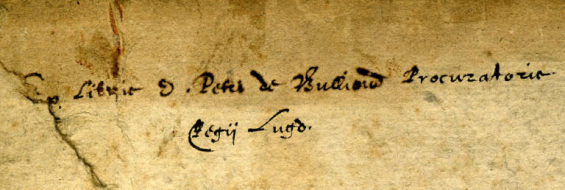 Ex Libris D. Petri de Bullioud Procuratoris
Regij Lugd.